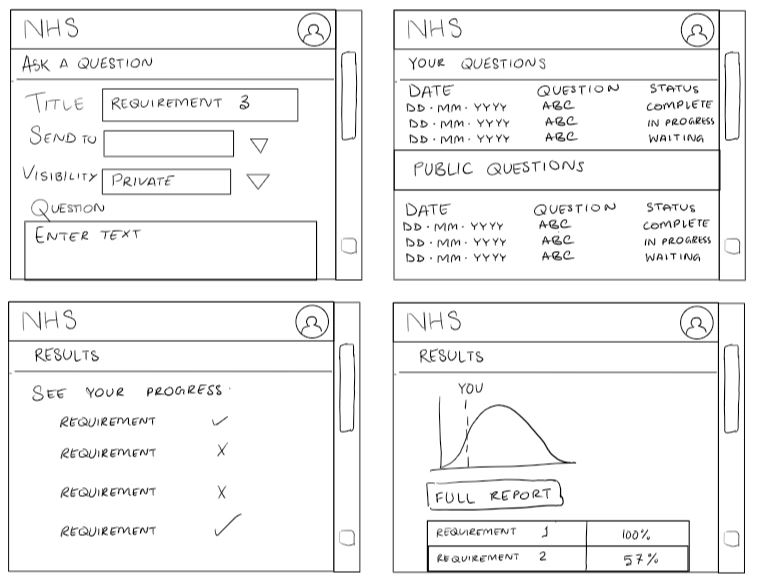 NHS
ASK A QUESTION
TITLE REQUIREMENT 3
SEND TO
VISIBILITY PRIVATE
QUESTION
ENTER TEXT
NHS
YOUR QUESTIONS
DATE QUESTION STATUS
DD·MM·YYYY ABC COMPLETE
DD·MM·YYYY ABC IN PROGRESS
DD·MM·YYYY ABC WAITING
PUBLIC QUESTIONS
DATE QUESTION STATUS
DD·MM·YYYY ABC COMPLETE
DD·MM·YYYY ABC IN PROGRESS
DD·MM·YYYY ABC WAITING
NHS
RESULTS
SEE YOUR PROGRESS.
REQUIREMENT ✓
REQUIREMENT X
REQUIREMENT X
REQUIREMENT ✓
NHS
RESULTS
YOU
FULL REPORT
REQUIREMENT 1 100%
REQUIREMENT 2 57%